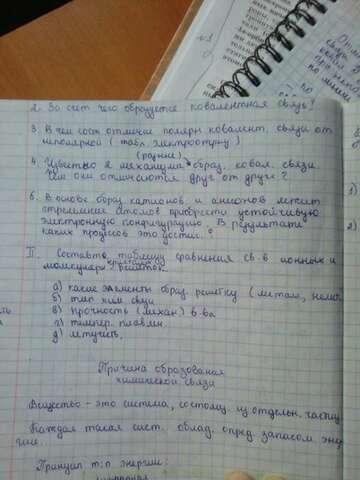 2. За счёт чего образуется ковалентная связь?
3. В чем сост. отличие полярн ковалент. связи от
неполярной (табл. электроотриц)
(разные)
4. Известно 2 механизма образ. ковал. связи
Чем они отличаются друг от друга?
6. В основе образ катионов и анионов лежит
стремление атомов приобрести устойчивую
электронную конфигурацию. В результате
каких процессов это достиг.?
II. Составить таблицу сравнения св-в ионных и
кристаллич
молекулярн решёток.
а) какие элементы образ. решётку (металл, немет.
б) тип хим связи
в) прочность (механ) в-ва
г) темпер. плавлен.
д) летучесть.
Причина образования
химической связи
Вещество - это система, состоящ. из отдельн. частиц
Каждая такая сист. облад. опред запасом энер
гии.
Принцип min энергии: